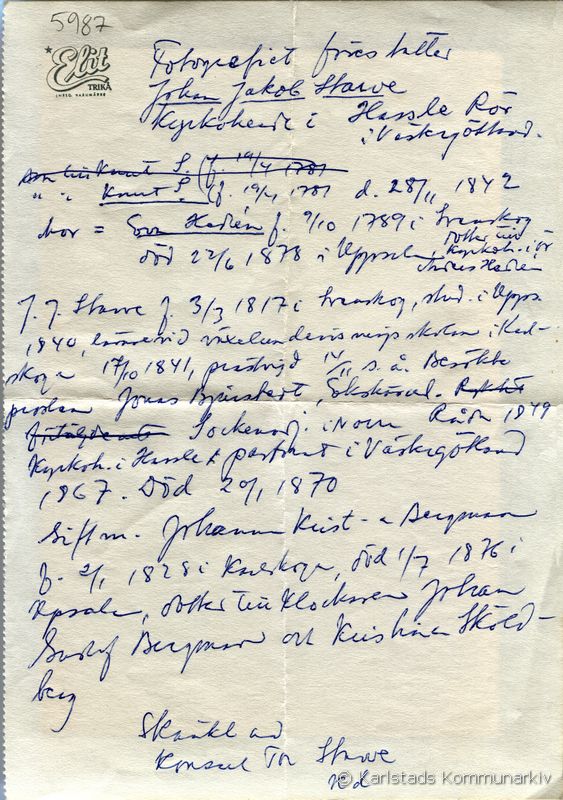 5987
Elit
TRIKÅ
INREG. VARUMÄRKE
Fotografiet föreställer
Johan Jakob Stawe
Kyrkoherde i Hassle Rör
i Västergötland.
Knut S. (f. 19/4 1781
" " Knut S. (f. 19/4 1781 d. 28/11 1842
mor = Hedén f. 9/10 1789 i Svanskog
dotter till
död 22/6 1878 i Uppsala Kyrkoh. i Ör
Hedén
J. J. Stawe f. 3/3 1817 i Svanskog, stud. i Upps.
1840, lärare vid växelundervisningsskolan i Karl-
skoga 17/10 1841, prästvigd 14/11 s. å. Besökte
prosten Jonas Bjurstedt, Ekshärad.
Sockenadj. i Norra Råda 1849
Kyrkoh. i Hassle pastorat i Västergötland
1867. Död 20/1 1870
Gift m. Johanna Krist-a Bergman
f. 2/1 1828 i Karlskoga, död 1/7 1876 i
Upsala, dotter till klockaren Johan
Gustaf Bergman och Kristina Sköld-
berg
Skänkt av
Konsul Tor Stawe
© Karlstads Kommunarkiv